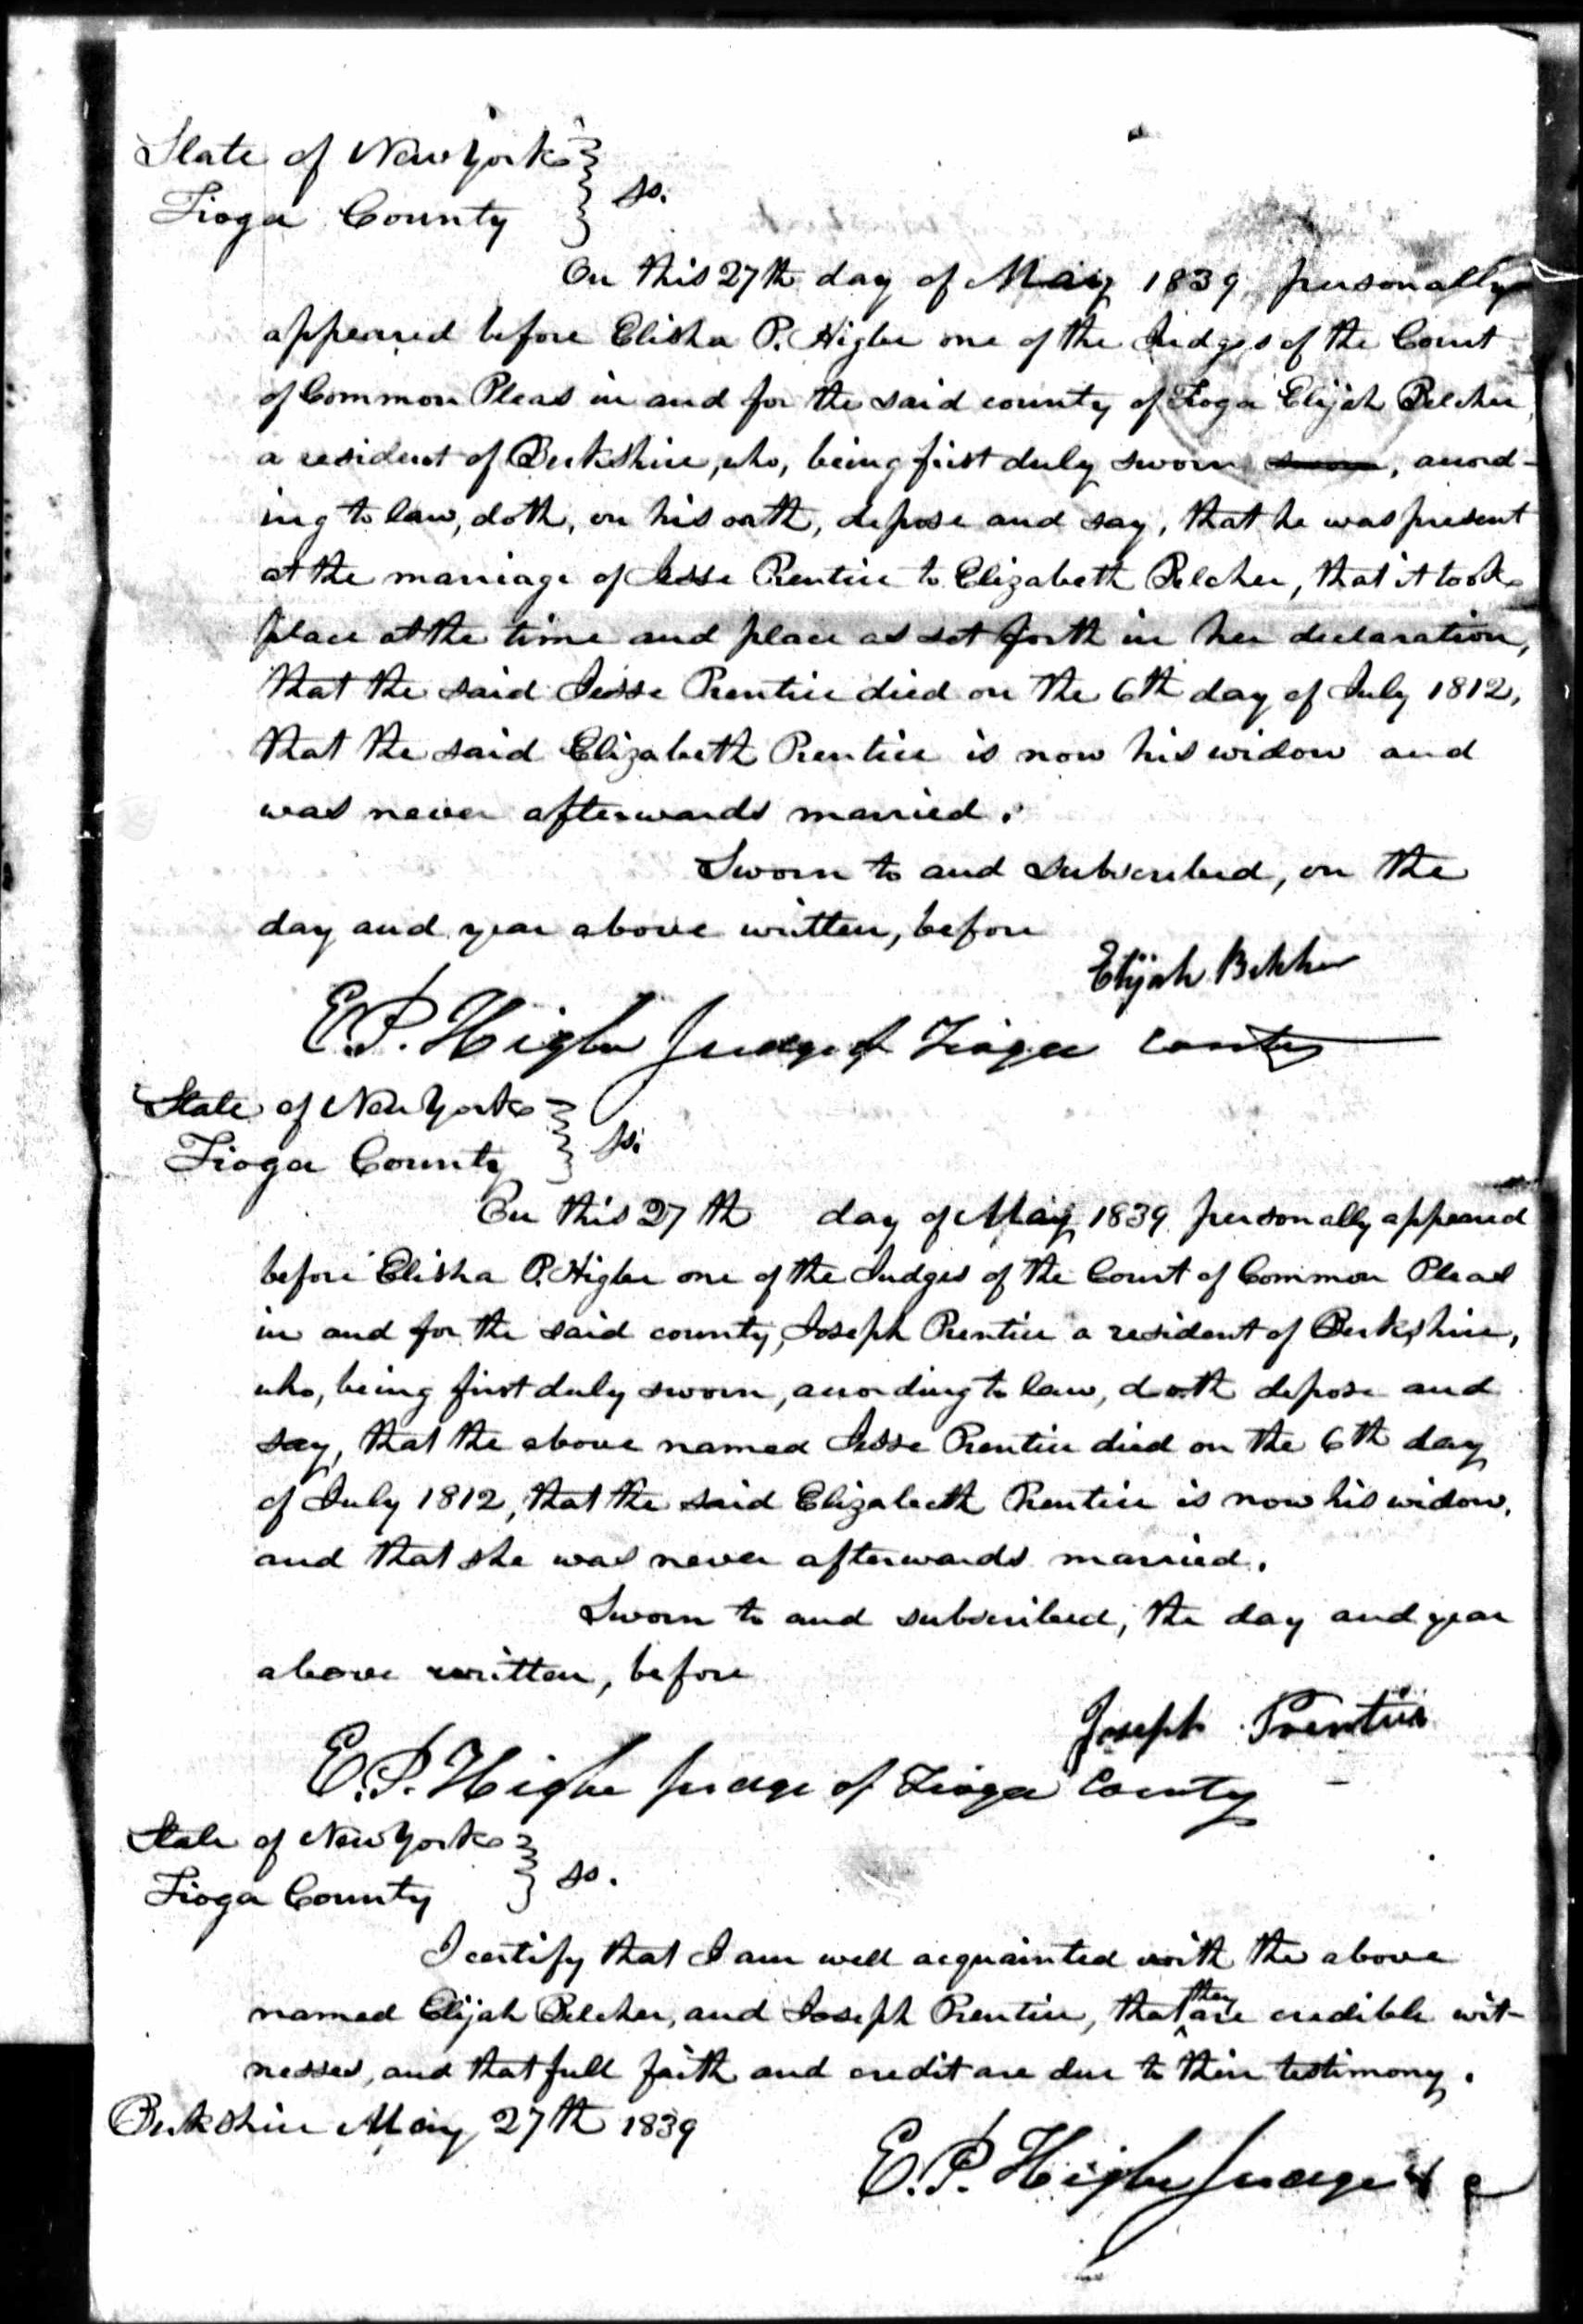 State of New York }
Tioga County } ss.
On this 27th day of May 1839, personally
appeared before Elisha P. Higbe one of the Judges of the Court
of Common Pleas in and for the said county of Tioga Elijah Belcher,
a resident of Berkshire, who, being first duly sworn sworn, accord-
ing to law, doth, on his oath, depose and say, that he was present
at the marriage of Jesse Prentice to Elizabeth Belcher, that it took
place at the time and place as set forth in her declaration,
that the said Jesse Prentice died on the 6th day of July 1812,
that the said Elizabeth Prentice is now his widow and
was never afterwards married.
Sworn to and subscribed, on the
day and year above written, before
Elijah Belcher
E.P. Higbe Judge of Tioga County
State of New York }
Tioga County } ss.
On this 27th day of May 1839 personally appeared
before Elisha P. Higbe one of the Judges of the Court of Common Pleas
in and for the said county, Joseph Prentice a resident of Berkshire,
who, being first duly sworn, according to law, doth depose and
say, that the above named Jesse Prentice died on the 6th day
of July 1812, that the said Elizabeth Prentice is now his widow,
and that she was never afterwards married.
Sworn to and subscribed, the day and year
above written, before
Joseph Prentice
E.P. Higbe Judge of Tioga County
State of New York }
Tioga County } ss.
I certify that I am well acquainted with the above
named Elijah Belcher, and Joseph Prentice, that they are credible wit-
nesses, and that full faith and credit are due to their testimony.
Berkshire May 27th 1839
E.P. Higbe Judge